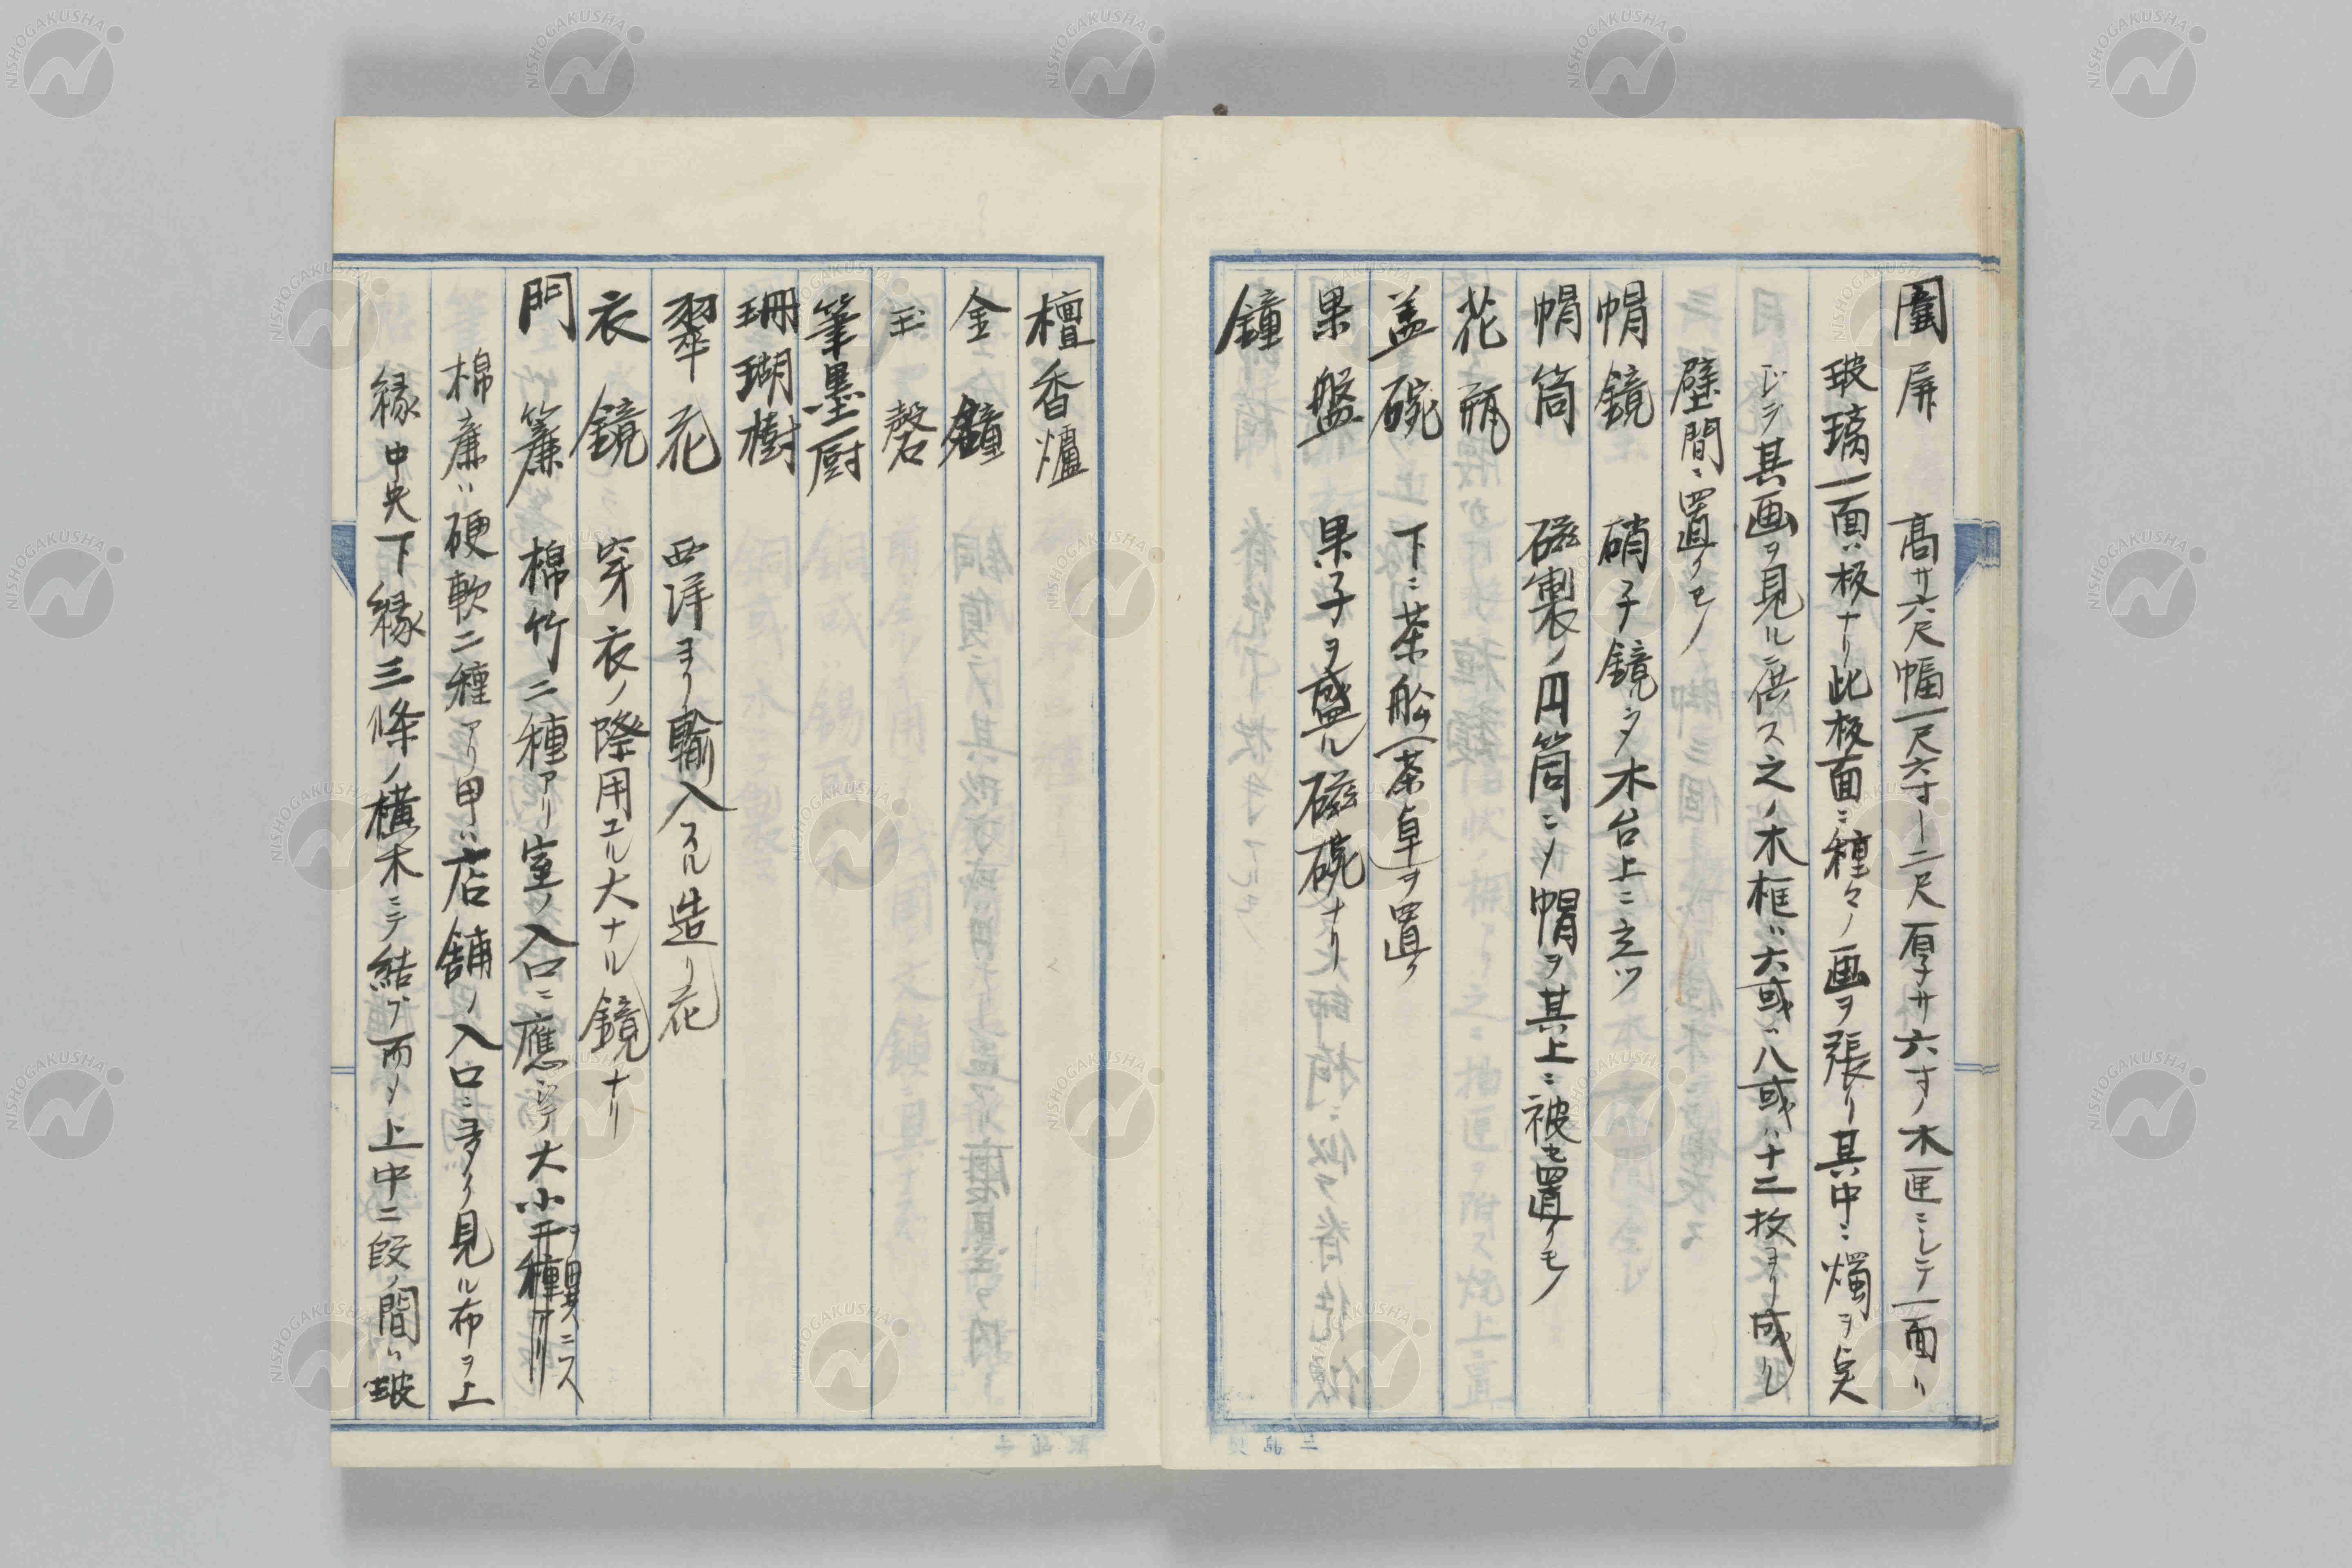 圍屏　高サ六尺幅一尺六寸ー二尺厚サ六寸ノ木匣ニシテ一面ハ
玻璃一面ハ板ナリ此板面ニ種々ノ画ヲ張リ其中ニ燭ヲ点
ジテ其画ヲ見ルニ供ス之ノ木框ハ六或ハ八或ハ十二枚ヨリ成ル
壁間ニ置クモノ
帽鏡　硝子鏡ニ〆木台上ニ立ツ
帽筒　磁製ノ円筒ニ〆帽ヲ其上ニ被セ置クモノ
花瓶
盖碗　下ニ茶舩一茶卓ヲ置ク
果盤　果子ヲ盛ル磁碗ナリ
鐘
檀香爐
金鐘
玉磬
筆墨厨
珊瑚樹
翠花　西洋ヨリ輸入スル造リ花
衣鏡　穿衣ノ際用ユル大ナル鏡ナリ
門簾　棉竹二種アリ室ノ入口ニ應ジテ大小ヲ異ニス
棉簾ハ硬軟二種アリ甲ハ店舗ノ入口ニ多ク見ル布ヲ上
縁中央下縁三條ノ横木ニテ結ブ而〆上中二段ノ間ハ玻